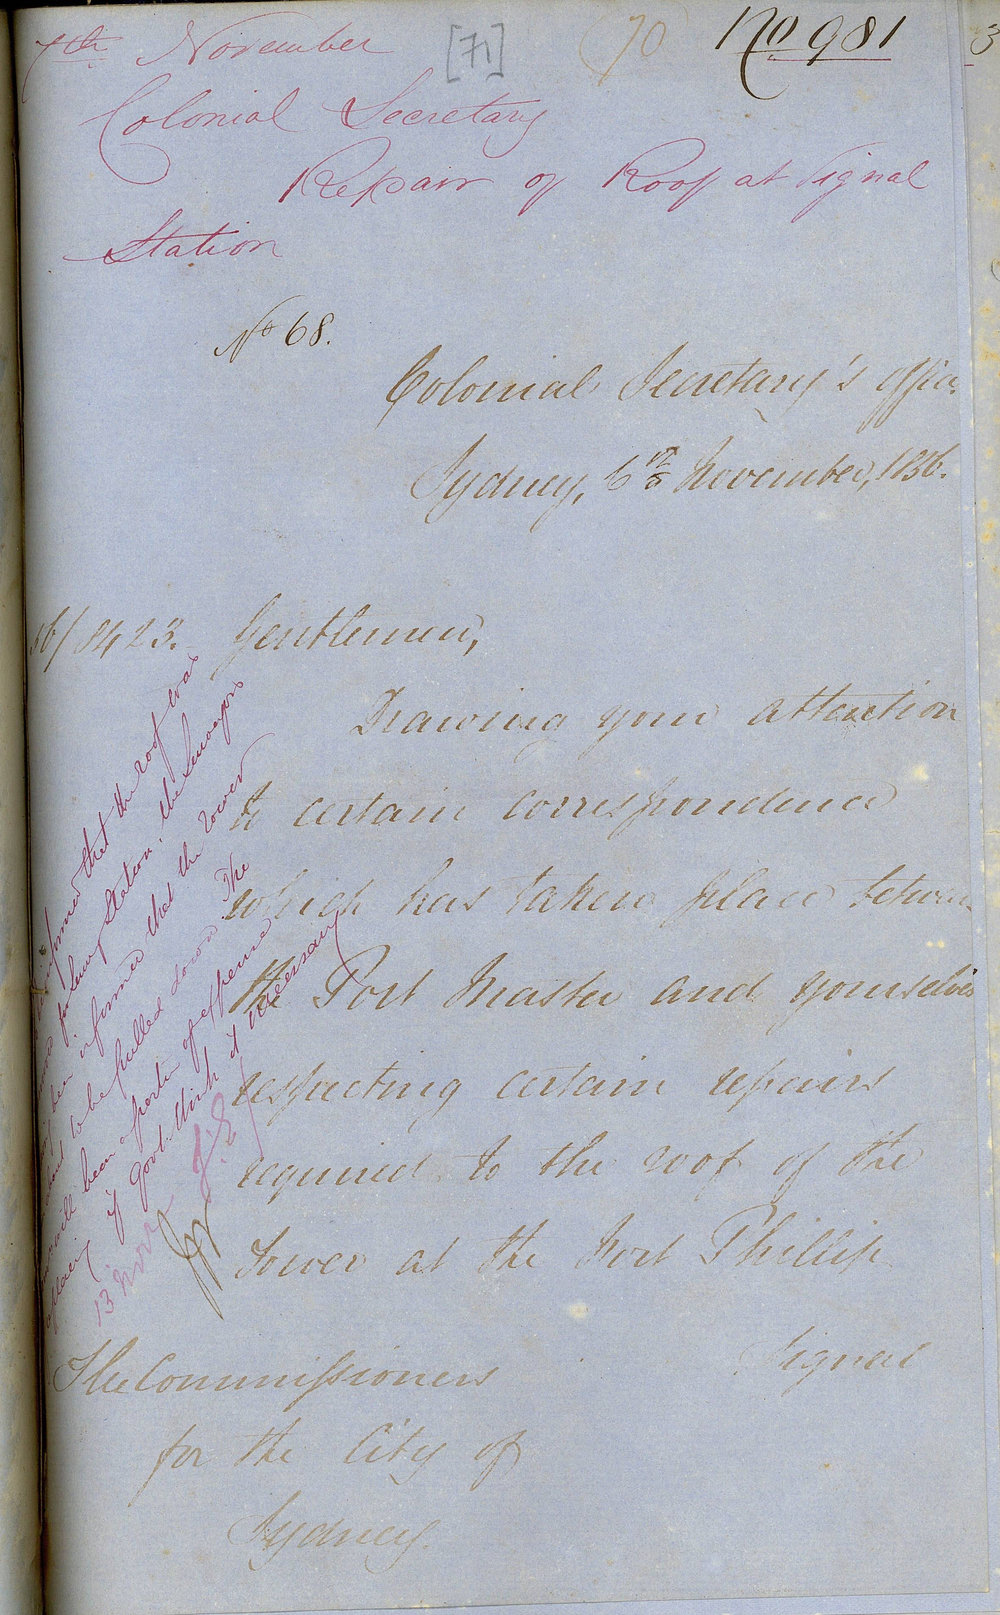 7th November [71] 70 No 981
Colonial Secretary
Repair of Roof at Signal
Station
No 68.
Colonial Secretary's Office
Sydney, 6th November, 1856.
56/8423. Gentlemen,
Drawing your attention
to certain correspondence
which has taken place between
the Port Master and yourselves
respecting certain repairs
required to the roof of the
Tower at the Fort Phillip
Signal
The Commissioners
for the City of
Sydney.
informed that the roof was
Station, the Surveyors
been informed that the tower
to be pulled down. The
will been a portion of expense
if Govt. think it necessary
13 Novr